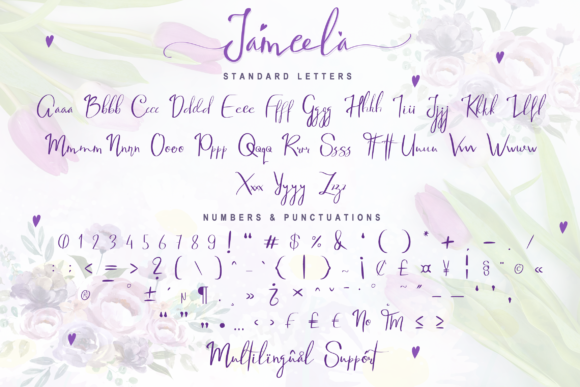 Jameela
STANDARD LETTERS
Aaaa Bbbb Cccc Dddd Eeee Ffff Gggg Hhhh Iiii Jjjj Kkkk Llll
Mmmm Nnnn Oooo Pppp Qqqq Rrrr Ssss Tttt Uuuu Vvvv Wwww
Xxxx Yyyy Zzzz
NUMBERS & PUNCTUATIONS
0 1 2 3 4 5 6 7 8 9 ! " # $ % & ' ( ) * + , - . /
: ; < = > ? ( \ ) ^ _ ` { | } ~ ¡ ¢ £ ¤ ¥ ¦ § ¨ © «
® ° ± ´ µ ¶ · ¸ » ¿ × ^ ˇ
" " „ • … ‹ › ₣ £ № ™ ≤ ≥
Multilingual Support